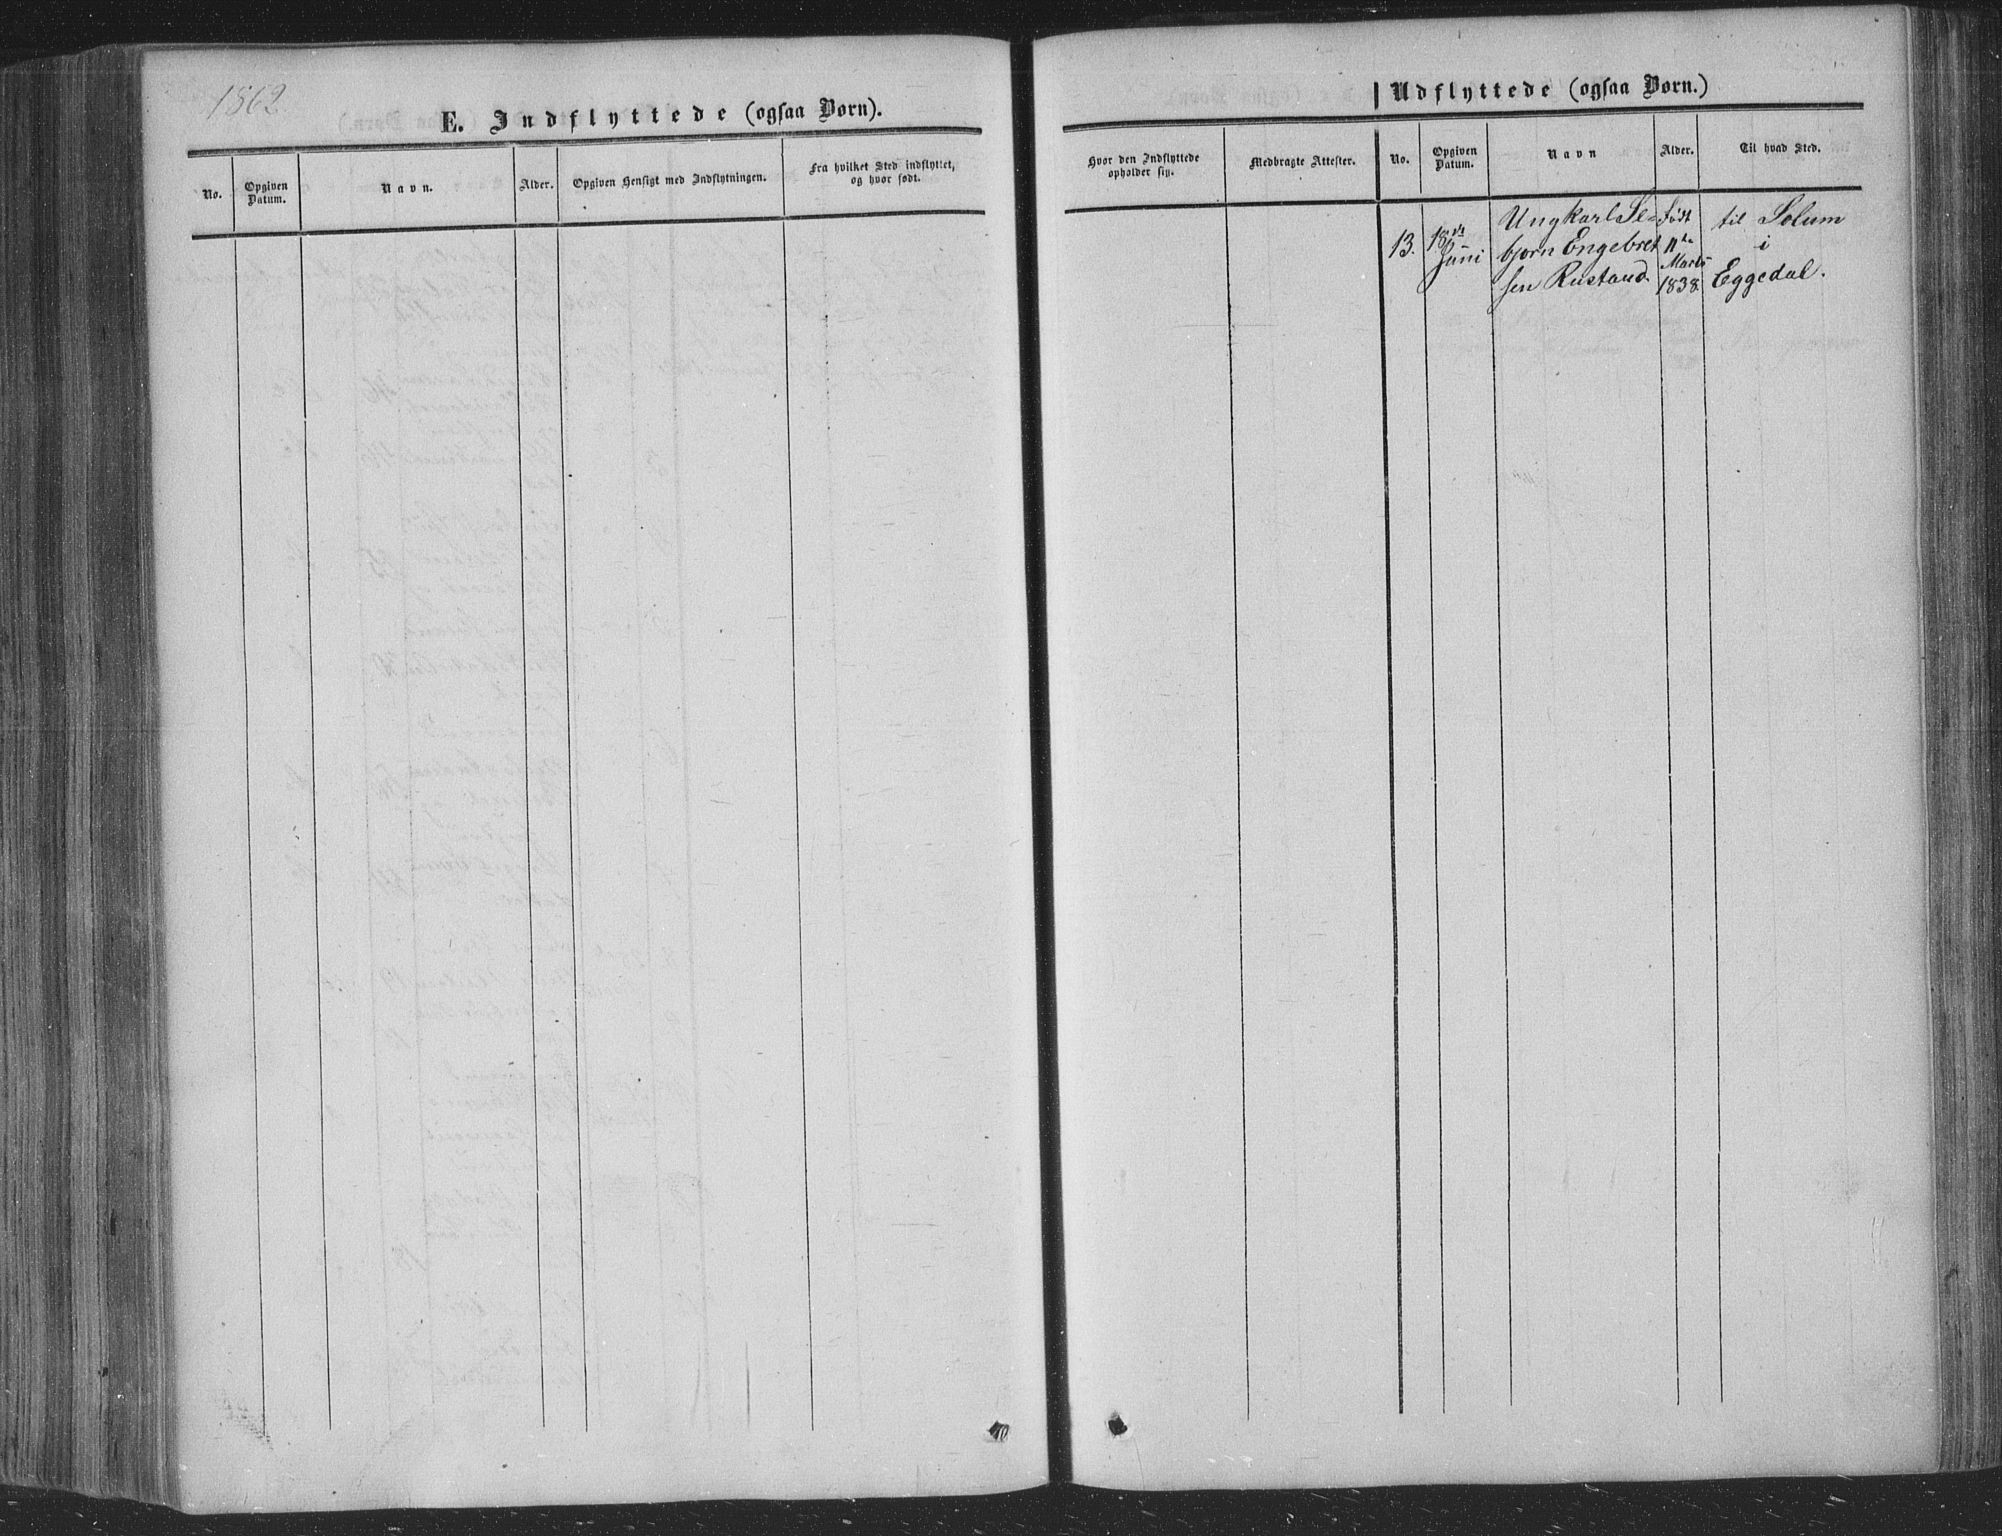 1862
E. Indflyttede (ogsaa Børn).
No.
Opgiven Datum.
Navn.
Alder.
Opgiven Hensigt med Indflytningen.
Fra hvilket Sted indflyttet,
og hvor født.
Udflyttede (ogsaa Børn.)
Hvor den Indflyttede
opholder sig.
Medbragte Attester.
No.
Opgiven
Datum.
Navn
Alder.
Til hvad Sted.
13. 18de Juni
Ungkarl Se=
bjørn Engebret
sen Rustand.
Født
11te
Marts
1838.
til Solum
i
Eggedal.